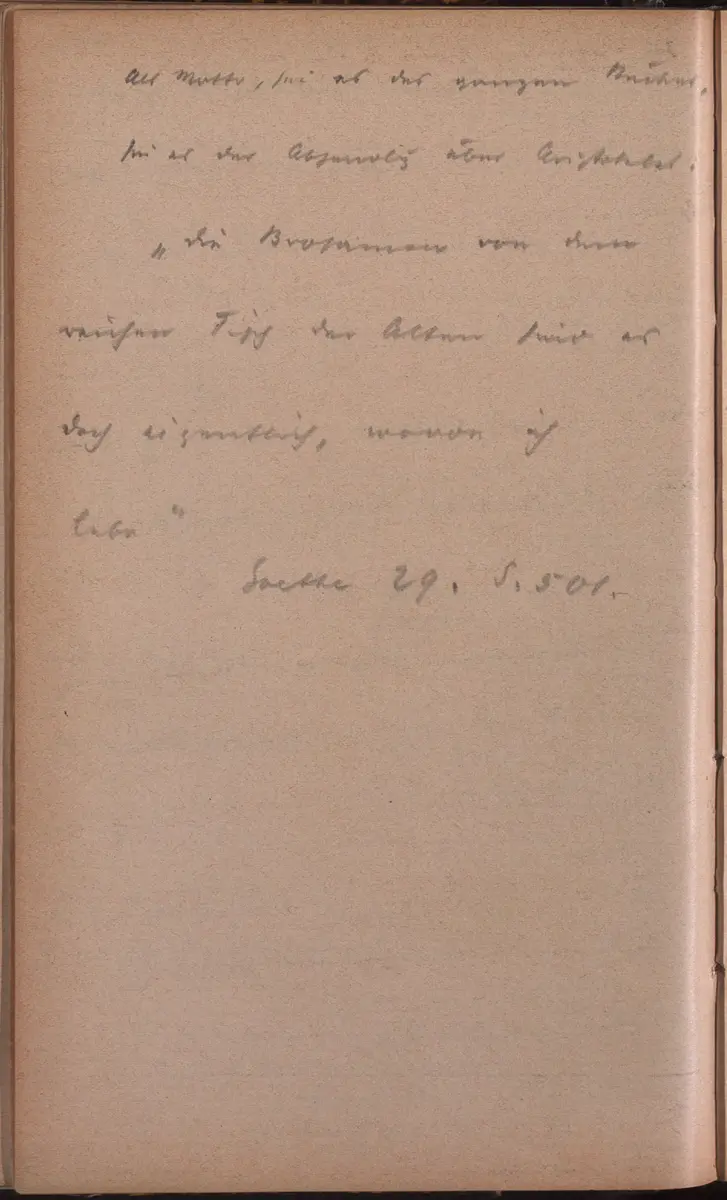 Als Motto, sei es des ganzen Buches,
sei es des Abschnitts über Aristoteles:
„Die Brosamen von dem
reichen Tisch der Alten sind es
doch eigentlich, wovon ich
lebe“
Goethe 29. S. 501.